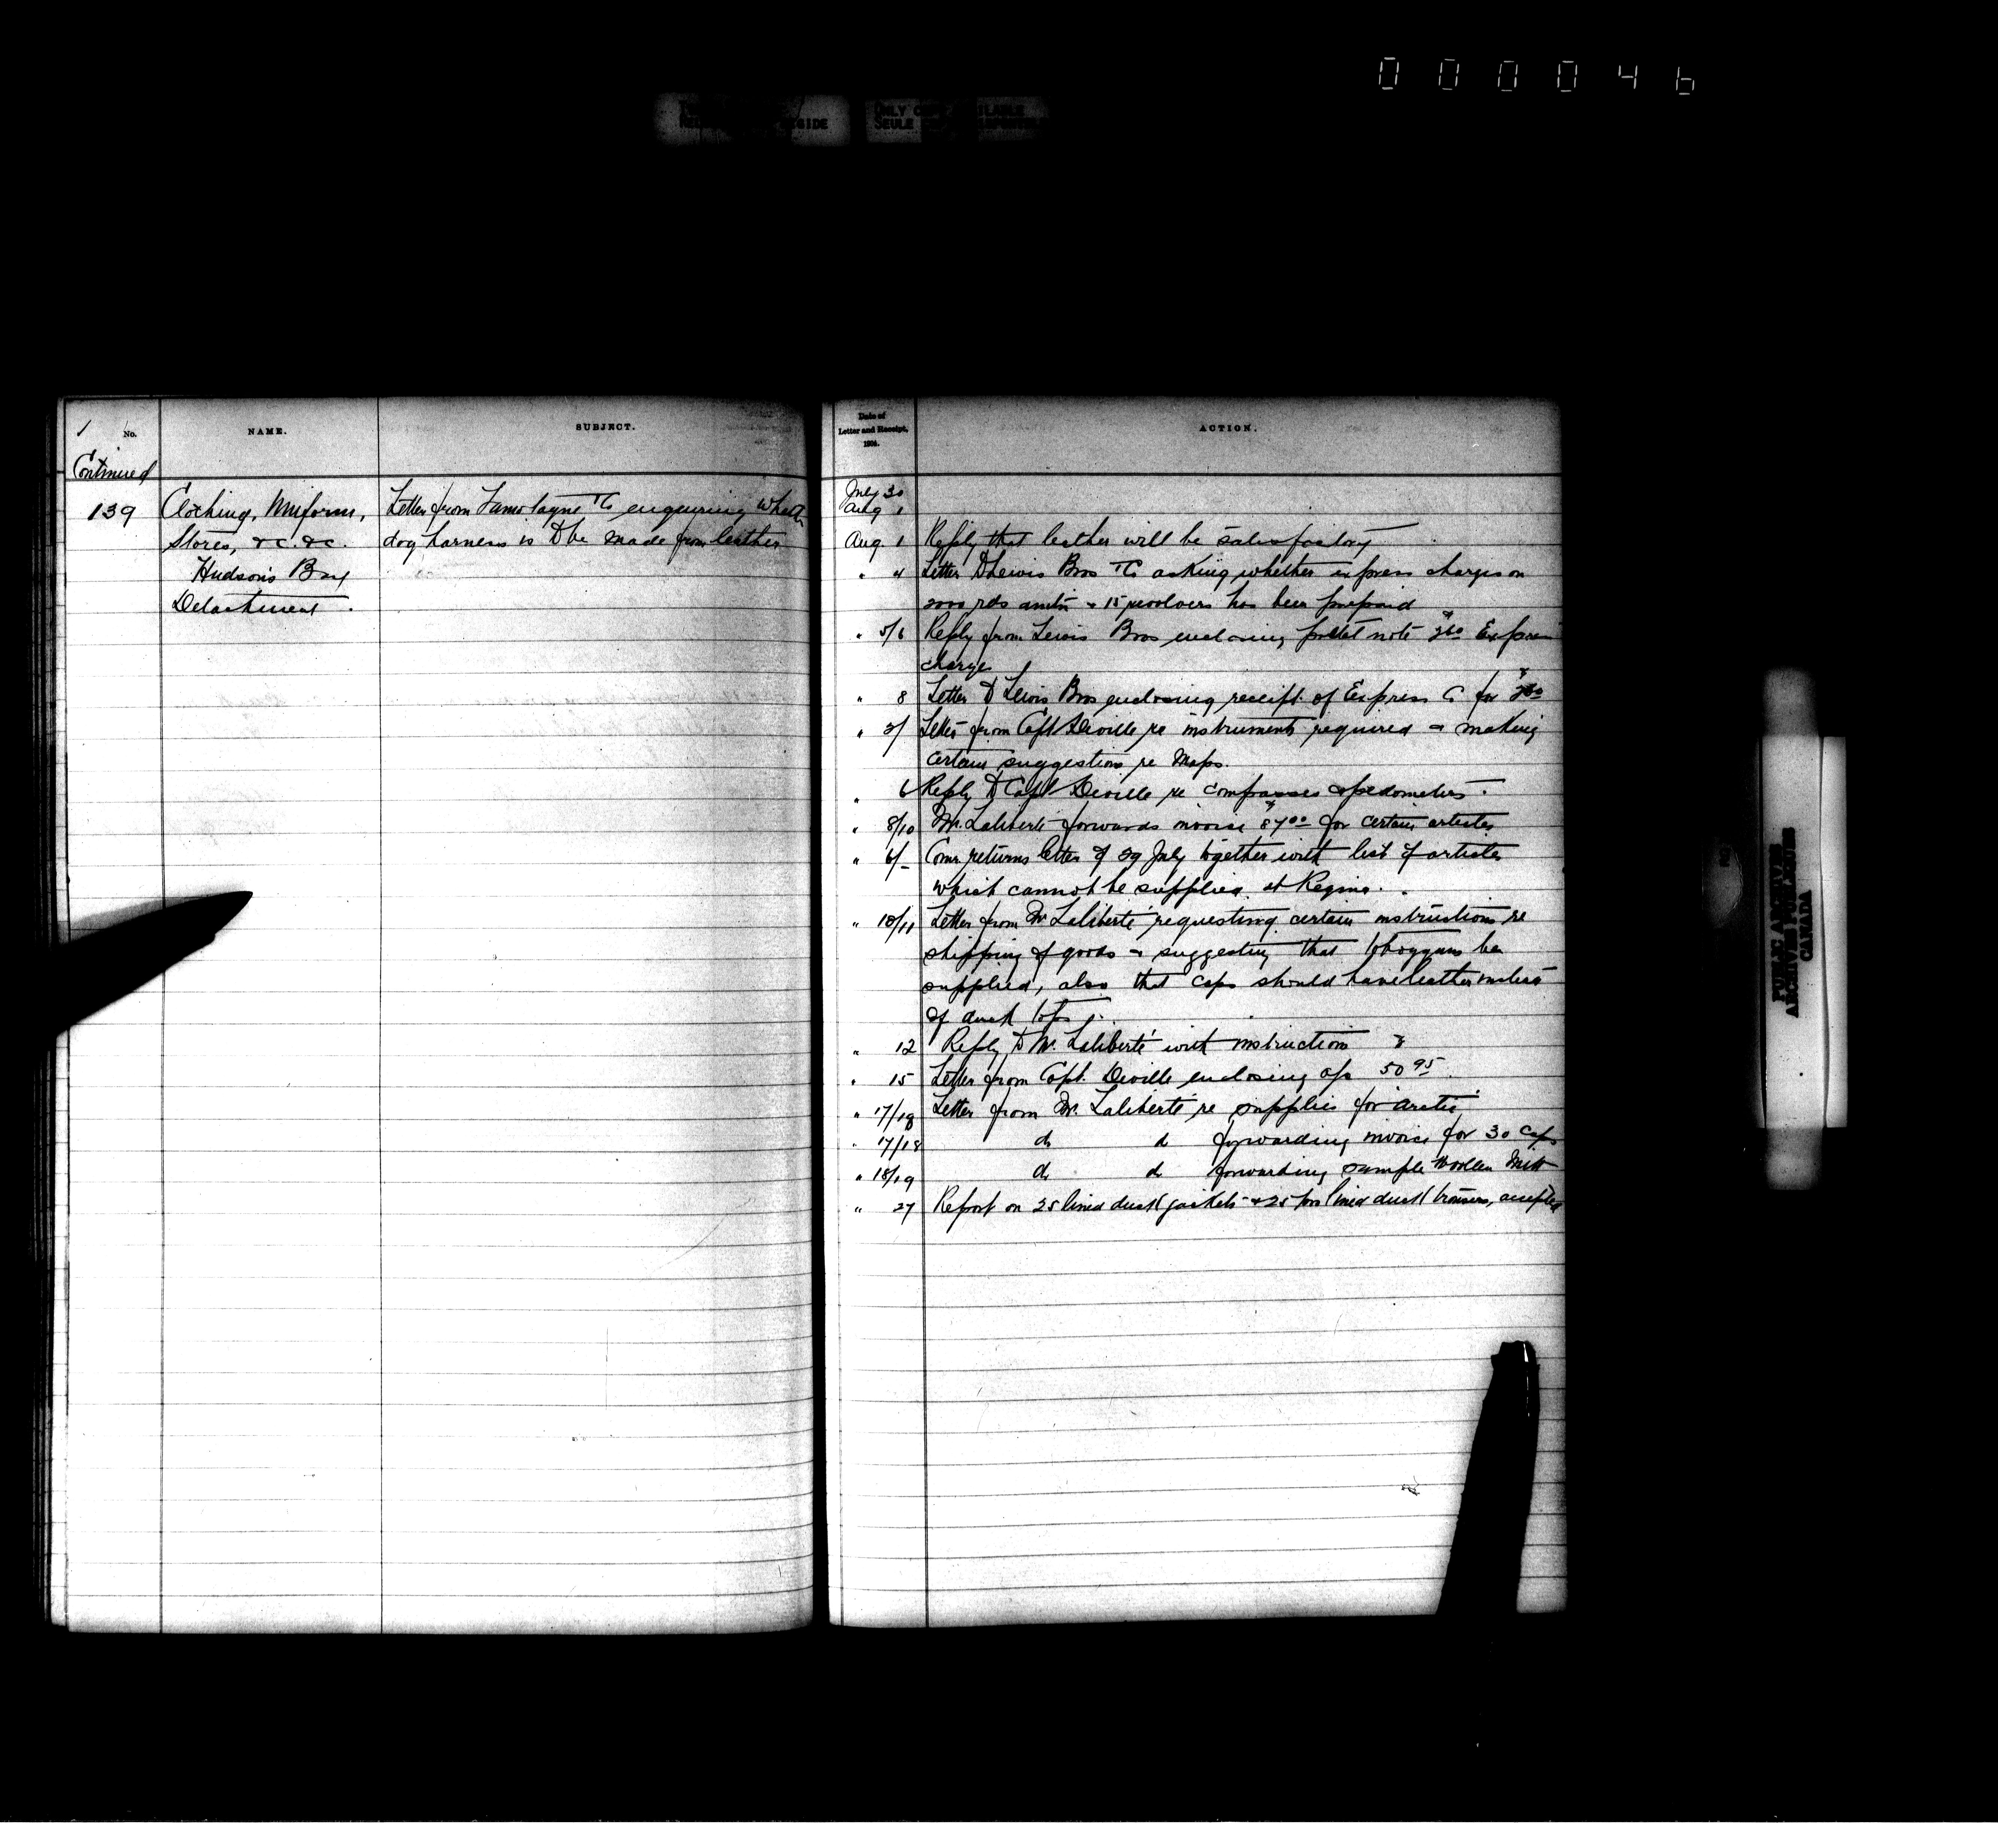 000046
ONLY
SEULE
1
No.
NAME.
SUBJECT.
Continued
139
Clothing, Uniforms,
Stores, &c. &c.
Hudson's Bay
Detachment.
Letter from Lamontagne Co enquiring whether
dog harness is to be made from leather
Date of
Letter and Receipt,
1904.
ACTION.
July 30
Aug 1
Aug 1 Reply that leather will be satisfactory
" 4 Letter to Lewis Bros & Co asking whether express charges on
2000 rds amtn & 15 revolvers has been prepaid
" 5/6 Reply from Lewis Bros enclosing postal note Express
charges
" 8 Letter to Lewis Bros enclosing receipt of Express Co for
" 3/ Letter from Capt Deville re instruments required & making
certain suggestions re Maps.
" 6 Reply to Capt Deville re compasses & pedometers.
" 8/10 Mr. Laliberté forwards invoice $87.00 for certain articles
" 6/- Comr. returns letter of 29 July together with list of articles
which cannot be supplied at Regina.
" 10/11 Letter from Mr Laliberté requesting certain instructions re
shipping of goods & suggesting that toboggans be
supplied, also that caps should have leather instead
of duck tops.
" 12 Reply to Mr. Laliberté with instructions
" 15 Letter from Capt. Deville enclosing a/c $50 95.
" 17/18 Letter from Mr. Laliberté re supplies for arctic
" 17/18 do do forwarding invoice for 30 caps
" 18/19 do do forwarding sample woollen Mitt
" 27 Report on 25 lined duck jackets & 25 prs lined duck trousers, accepted
PUBLIC ARCHIVES
ARCHIVES PUBLIQUES
CANADA